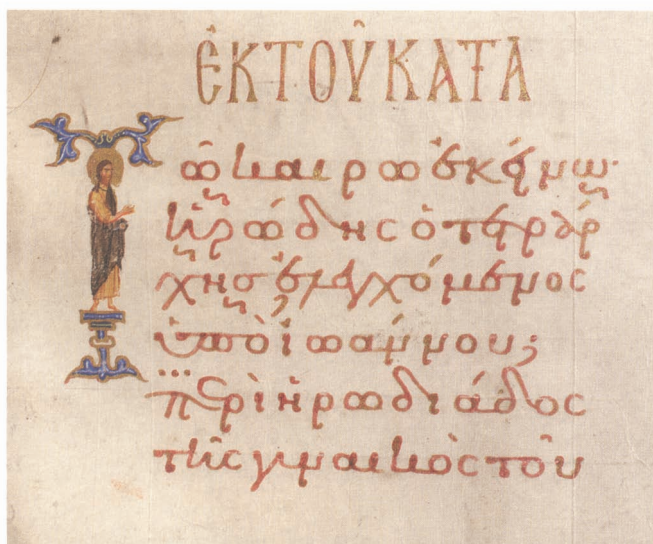 ἘΚ ΤΟΥ͂ ΚΑΤΑ
Τῶ καιρῶ ἐκείνω·
ἡρώδης ὁ τετράρ
χης ἐλεγχόμενος
ὑπὸ ἰωάννου;
περὶ ἡρωδιάδος
τῆς γυναικὸς τοῦ